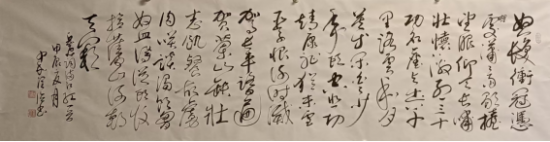 怒髮衝冠憑
處瀟雨歇擡
望眼仰天長嘯
壯懷激烈三十
功名塵與土八千
里路雲和月
莫等閒白了少
年頭空悲切
靖康恥猶未雪
臣子恨何時滅
駕長車踏破
賀蘭山缺壯
志飢餐胡虜
肉笑談渴飲匈
奴血待從頭收
拾舊山河朝
天闕